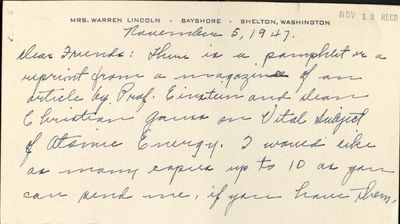 MRS. WARREN LINCOLN - BAYSHORE - SHELTON, WASHINGTON
NOV 10 RECD
November 5, 1947.
Dear Friends: There is a pamphlet or a
reprint from a magazine of an
article by Prof. Einstein and Dean
Christian Gauss on Vital Subject
of Atomic Energy. I would like
as many copies up to 10 as you
can send me, if you have them,